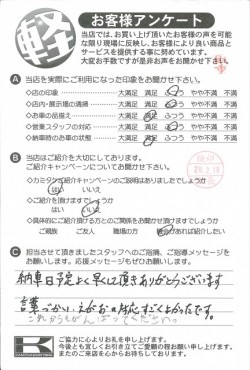 軽
お客様アンケート
当店では、お買い上げ頂いたお客様の声を可能
な限り現場に反映し、お客様により良い商品と
サービスを提供する事に努めています。
大変お手数ですが是非お声をお聞かせ下さい。
A 当店を実際にご利用になった印象をお聞かせ下さい。
◇店の印象 大満足 満足 ふつう やや不満 不満
◇店内・展示場の清掃 大満足 満足 ふつう やや不満 不満
◇お車の品揃え 大満足 満足 ふつう やや不満 不満
◇営業スタッフの対応 大満足 満足 ふつう やや不満 不満
◇納車時のお車の状態 大満足 満足 ふつう やや不満 不満
B 当店はご紹介を大切にしております。
ご紹介キャンペーンについてお聞かせ下さい。
◇カミタケご紹介キャンペーンのご説明はありましたでしょうか
はい いいえ
◇ご紹介を頂けますでしょうか
はい いいえ
◇具体的にご紹介頂ける方とのご関係をお聞かせ頂けますでしょうか
ご親族 ご友人 職場の方 機会があれば紹介したい
C 担当させて頂きましたスタッフへのご指摘、ご指導メッセージを
お願いします。応援メッセージもぜひお願いします。
納車日予定よく早くして頂きありがとうございます
言葉づかい、えがおの対応すごくよかったです。
これからもがんばってください。
K
ご協力に心よりお礼を申し上げます。
今後とも宜しくお引き立てご愛顧の程お願い申し上げます。
またのご来店を心からお待ちしております。